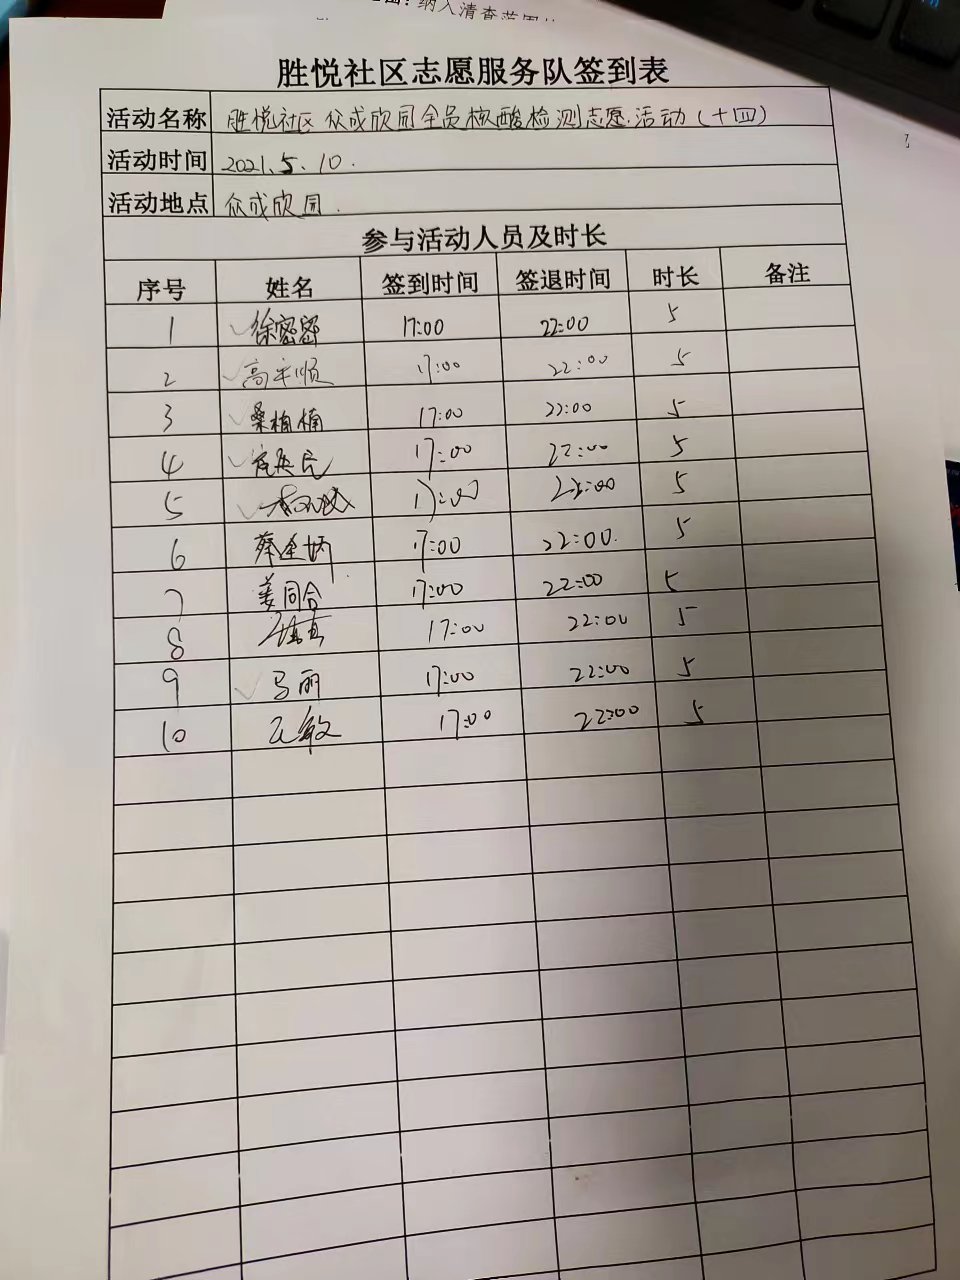 纳入清查范围
胜悦社区志愿服务队签到表
活动名称 胜悦社区众成欣园全员核酸检测志愿活动(十四)
活动时间 2021.5.10.
活动地点 众成欣园.
参与活动人员及时长
序号 姓名 签到时间 签退时间 时长 备注
1 徐密密 17:00 22:00 5
2 17:00 22:00 5
3 桑楠楠 17:00 22:00 5
4 17:00 22:00 5
5 17:00 22:00 5
6 17:00 22:00. 5
7 姜同合 17:00 22:00 5
8 17:00 22:00 5
9 马丽 17:00 22:00 5
10 17:00 22:00 5